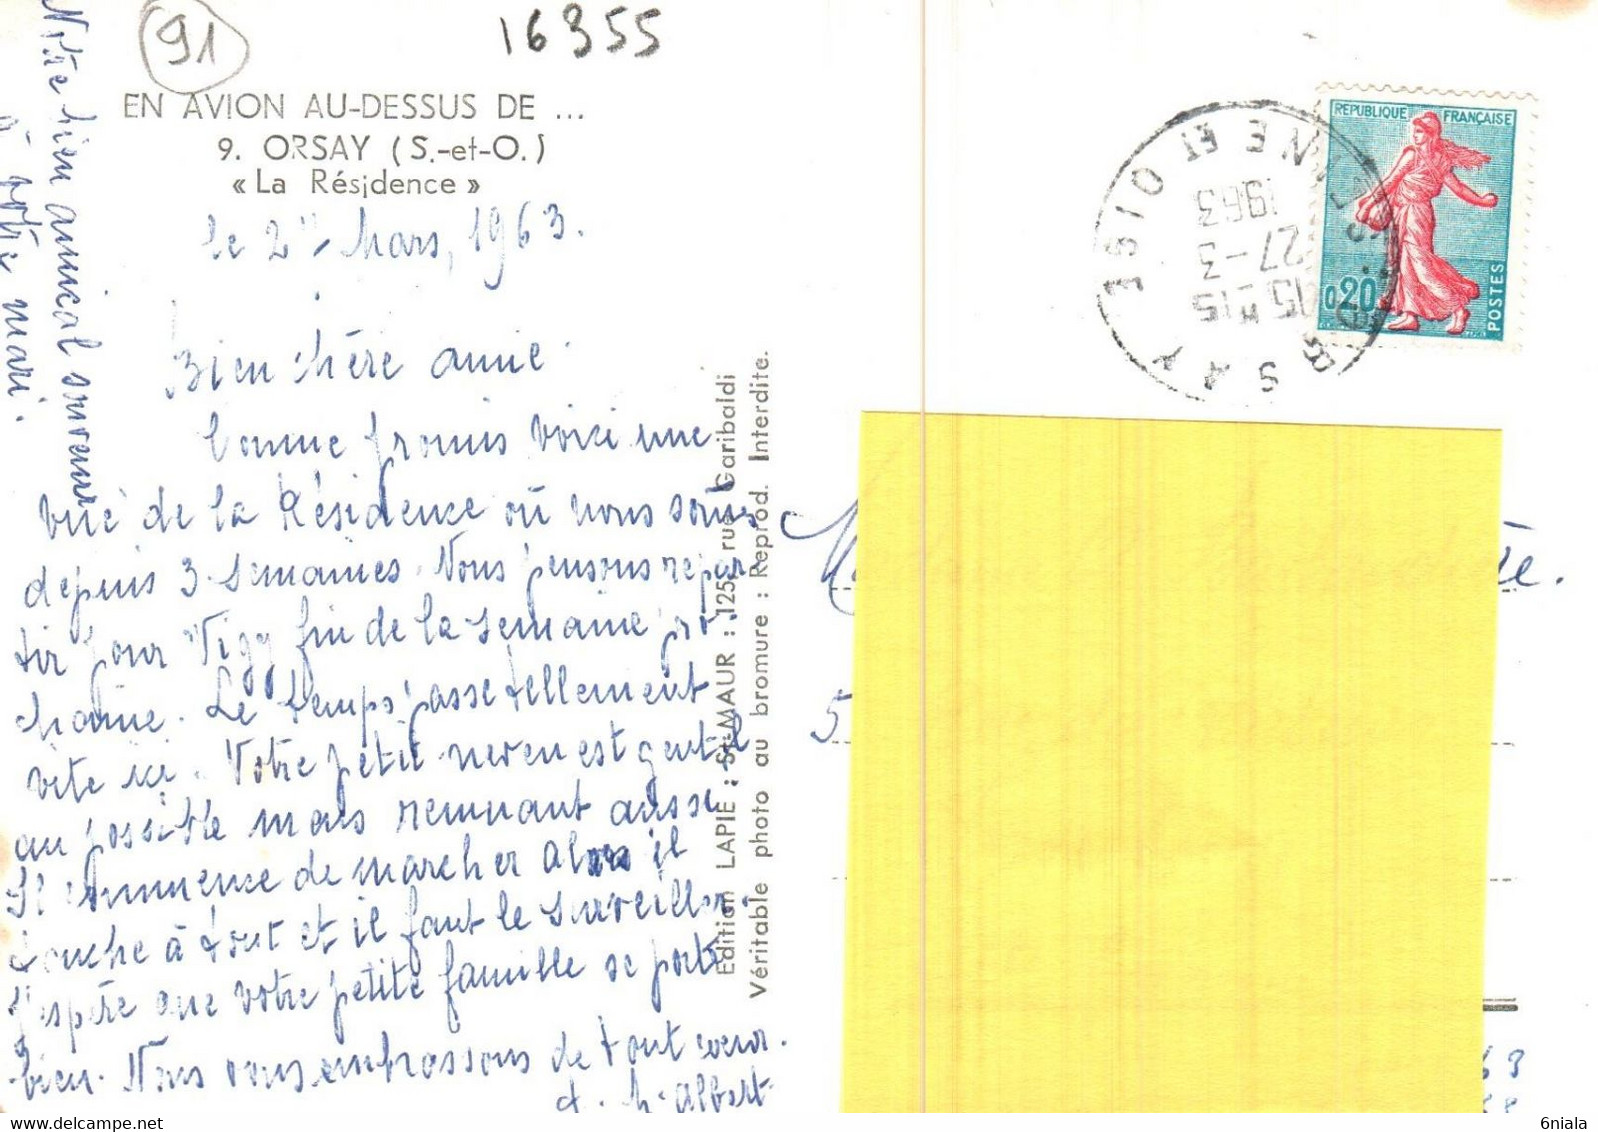 91
16355
EN AVION AU-DESSUS DE ...
9. ORSAY (S.-et-O.)
« La Résidence »
le 2 Mars, 1963.
Bien chère amie.
Comme promis voici une
vue de la Résidence où nous sommes
depuis 3 semaines. Nous pensons repar
tir pour Vigy fin de la semaine pro
chaine. Le temps passe tellement
vite ici. Votre petit neveu est gentil
au possible mais remuant aussi
Il commence de marcher alors il
touche à tout et il faut le surveiller.
J'espère que votre petite famille se porte
bien. Nous vous embrassons de tout cœur.
Albert
Notre bien amical souvenir
à votre mari.
Edition LAPIE : St-MAUR : 125, rue Garibaldi
Véritable photo au bromure : Reprod. Interdite.
REPUBLIQUE FRANÇAISE
0,20
POSTES
ORSAY
SEINE ET OISE
15 H 15
27-3
1963
5
63
6niala